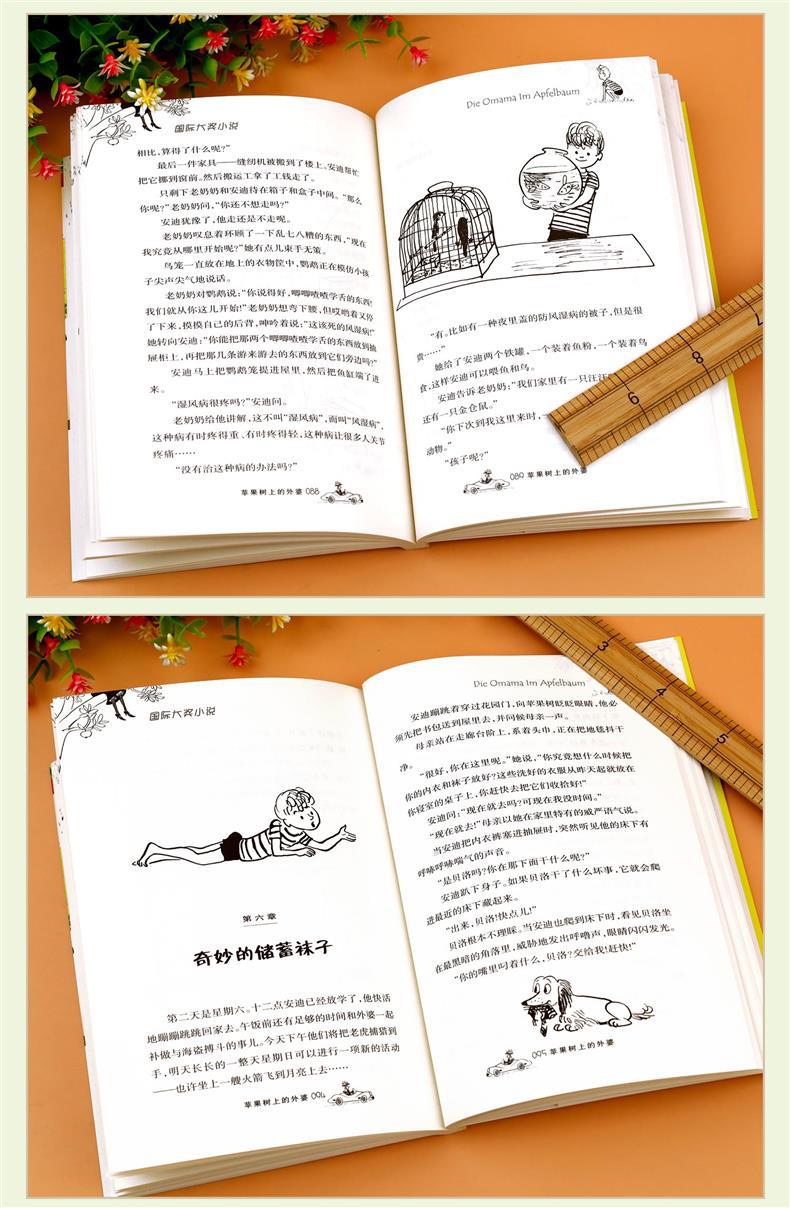 国际大奖小说
相比，算得了什么呢？”
最后一件家具——缝纫机被搬到了楼上。安迪帮忙
把它挪到窗前。然后搬运工拿了工钱走了。
只剩下老奶奶和安迪待在箱子和盒子中间。“那么
你呢？”老奶奶问，“你还不想走吗？”
安迪犹豫了，他走还是不走呢。
老奶奶叹息着环顾了一下乱七八糟的东西，“现在
我究竟从哪里开始呢？”她有点儿束手无策。
鸟笼一直放在地上的衣物筐中，鹦鹉正在模仿小孩
子尖声尖气地说话。
老奶奶对鹦鹉说：“你说得好，唧唧喳喳学舌的东西！
我们就从你这儿开始！”老奶奶想弯下腰，但哎哟着又停
了下来，摸摸自己的后背，呻吟着说：“这该死的风湿病！”
她转向安迪：“你能把那两个唧唧喳喳学舌的东西放到抽
屉柜上，再把那几条游来游去的东西放到它们旁边吗？”
安迪马上把鹦鹉笼提进屋里，然后把鱼缸端了进
来。
“湿风病很疼吗？”安迪问。
老奶奶给他讲解，这不叫“湿风病”，而叫“风湿病”，
这种病有时疼得重、有时疼得轻，这种病让很多人关节
疼痛……
“没有治这种病的办法吗？”
苹果树上的外婆 088
Die Omama Im Apfelbaum
“有。比如有一种夜里盖的防风湿病的被子，但是很
贵……”
她给了安迪两个铁罐，一个装着鱼粉，一个装着鸟
食，这样安迪可以喂鱼和鸟。
安迪告诉老奶奶：“我们家里有一只汪汪
还有一只金仓鼠。”
“你下次到我这里来时，一
动物。”
“孩子呢？”
089 苹果树上的外婆
6
8
7
国际大奖小说
第六章
奇妙的储蓄袜子
第二天是星期六。十二点安迪已经放学了，他快活
地蹦蹦跳跳回家去。午饭前还有足够的时间和外婆一起
补做与海盗搏斗的事儿。今天下午他们将把老虎捕猎到
手，明天长长的一整天星期日可以进行一项新的活动
——也许坐上一艘火箭飞到月亮上去……
苹果树上的外婆 094
Die Omama Im Apfelbaum
安迪蹦跳着穿过花园门，向苹果树眨眨眼睛，他必
须先把书包送到屋里去，并问候母亲一声。
母亲站在走廊台阶上，系着头巾，正在把地毯抖干
净。
“很好，你在这里呢。”她说，“你究竟想什么时候把
你的内衣和袜子放好？这些洗好的衣服从昨天起就放在
你寝室的桌子上，你赶快去把它们收拾好！”
安迪问：“现在就去吗？可现在我没时间。”
“现在就去！”母亲以她在家里特有的威严语气说。
当安迪把内衣裤塞进抽屉时，突然听见他的床下有
呼哧呼哧喘气的声音。
“是贝洛吗？你在那下面干什么呢？”
安迪趴下身子。如果贝洛干了什么坏事，它就会爬
进最近的床下藏起来。
“出来，贝洛！快点儿！”
贝洛根本不理睬。当安迪也爬到床下时，看见贝洛坐
在最黑暗的角落里，威胁地发出呼噜声，眼睛闪闪发光。
“你的嘴里叼着什么，贝洛？交给我！赶快！”
095 苹果树上的外婆
3
4
5